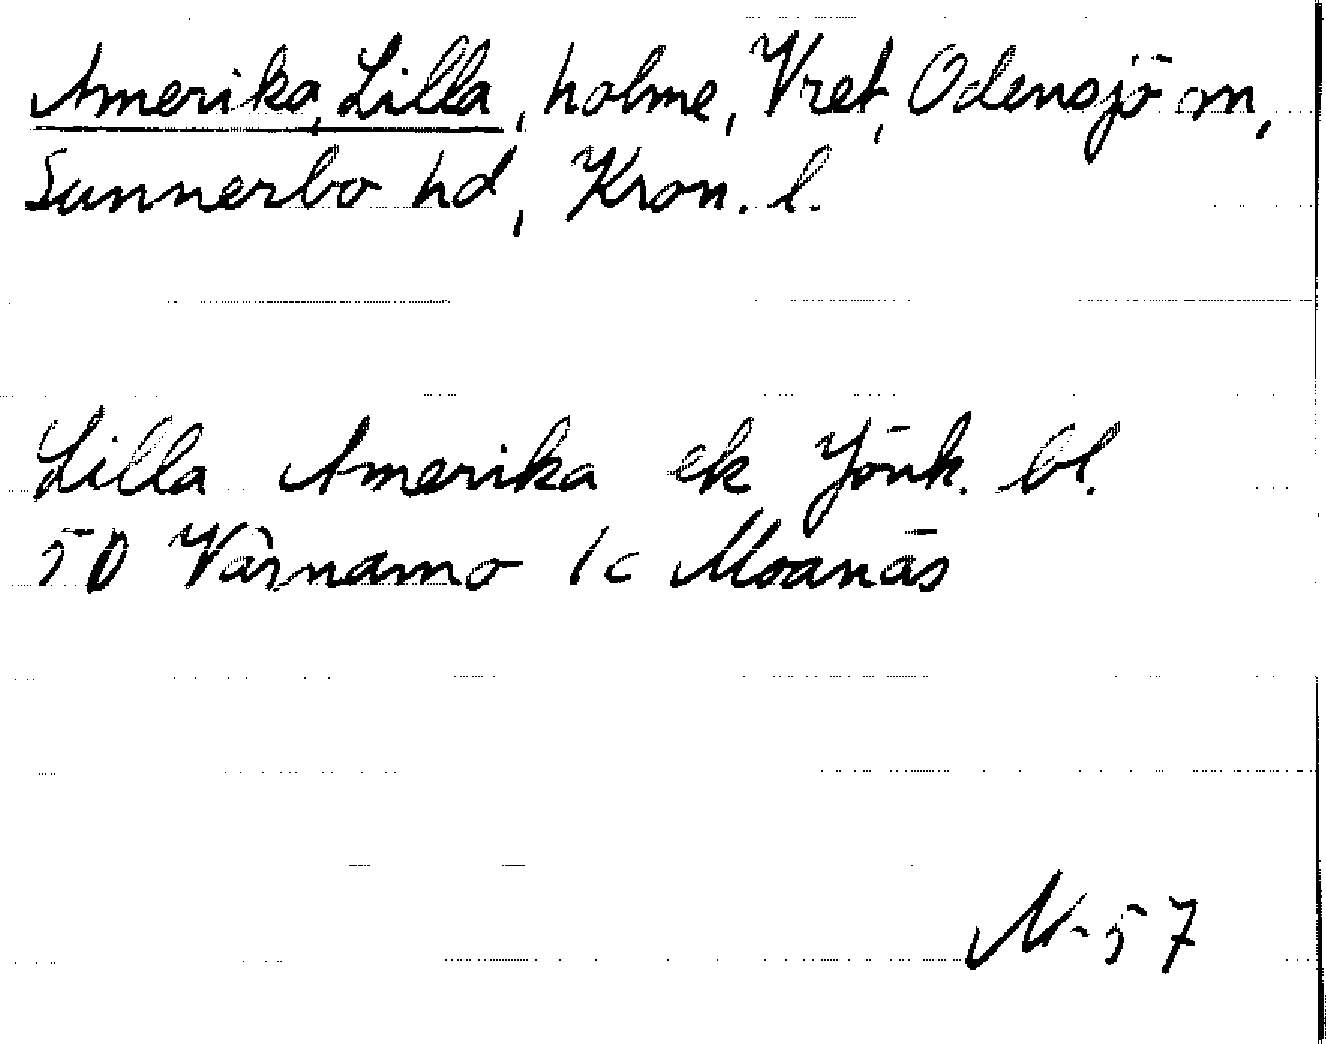 Amerika, Lilla, holme, Vret, Odensjö sn,
Sunnerbo hd, Kron. l.
Lilla Amerika ek Jönk. bl.
50 Värnamo 1c Moanäs
N-57